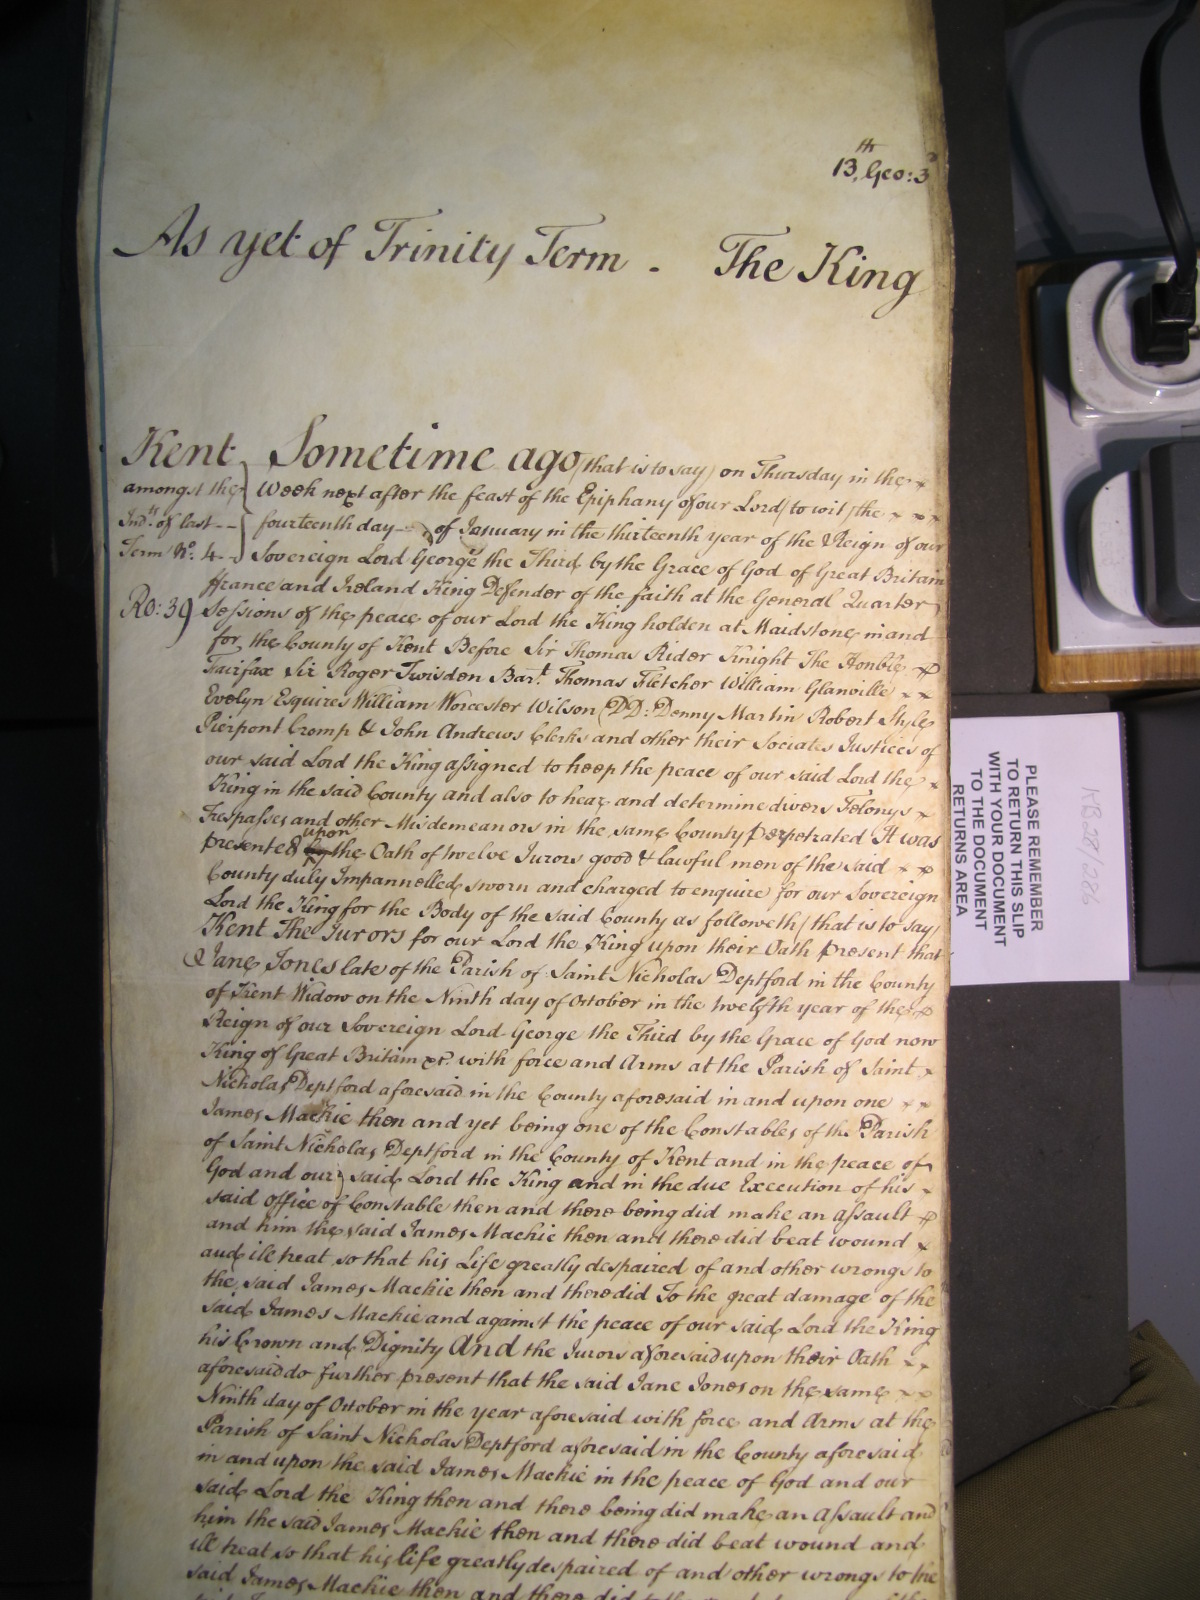 13th Geo: 3d
As yet of Trinity Term. The King
Kent Sometime ago (that is to say) on Thursday in the
amongst the Week next after the feast of the Epiphany of our Lord (to wit) the
Indts of last fourteenth day of January in the thirteenth year of the Reign of our
Term No. 4 Sovereign Lord George the Third by the Grace of God of Great Britain
france and Ireland King Defender of the faith at the General Quarter
Ro: 39 Sessions of the peace of our Lord the King holden at Maidstone in and
for the County of Kent Before Sir Thomas Rider Knight The Honble
Fairfax Sir Roger Twisden Bart. Thomas Fletcher William Glanville
Evelyn Esquires William Worcester Wilson DD: Denny Martin Robert Style
Pierpont Cromp & John Andrews Clerks and other their Sociates Justices of
our said Lord the King assigned to keep the peace of our said Lord the
King in the said County and also to hear and determine divers Felonys
Trespasses and other Misdemeanors in the same County perpetrated It was
presented upon the Oath of twelve Jurors good & lawful men of the said
County duly Impannelled sworn and charged to enquire for our Sovereign
Lord the King for the Body of the said County as followeth (that is to say)
Kent The Jurors for our Lord the King upon their Oath present that
Jane Jones late of the Parish of Saint Nicholas Deptford in the County
of Kent Widow on the Ninth day of October in the twelfth year of the
Reign of our Sovereign Lord George the Third by the Grace of God now
King of Great Britain &c. with force and Arms at the Parish of Saint
Nicholas Deptford aforesaid in the County aforesaid in and upon one
James Mackie then and yet being one of the Constables of the Parish
of Saint Nicholas Deptford in the County of Kent and in the peace of
God and our said Lord the King and in the due Execution of his
said Office of Constable then and there being did make an assault
and him the said James Mackie then and there did beat wound
and ill treat so that his Life greatly despaired of and other wrongs to
the said James Mackie then and there did To the great damage of the
said James Mackie and against the peace of our said Lord the King
his Crown and Dignity And the Jurors aforesaid upon their Oath
aforesaid do further present that the said Jane Jones on the same
Ninth day of October in the year aforesaid with force and Arms at the
Parish of Saint Nicholas Deptford aforesaid in the County aforesaid
in and upon the said James Mackie in the peace of God and our
said Lord the King then and there being did make an assault and
him the said James Mackie then and there did beat wound and
ill treat so that his life greatly despaired of and other wrongs to the
said James Mackie then and there did
KB 28/286
PLEASE REMEMBER
TO RETURN THIS SLIP
WITH YOUR DOCUMENT
TO THE DOCUMENT
RETURNS AREA